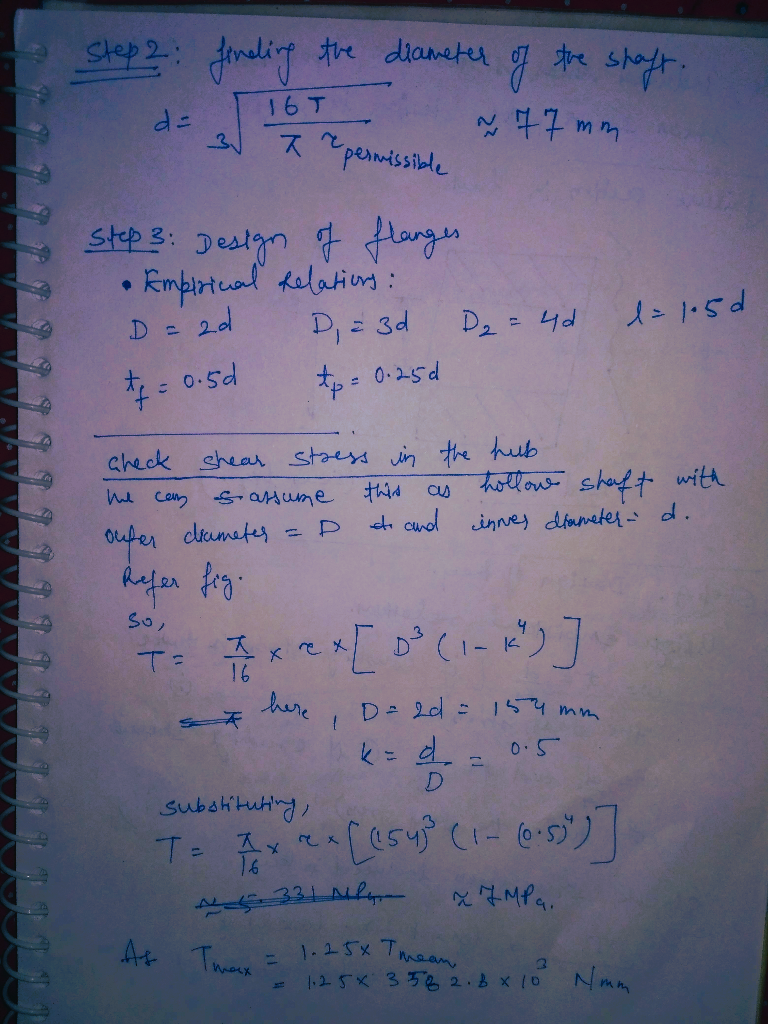 Step 2: finding the diameter of the shaft.
d = ∛(16T / π τ permissible) ≈ 77 mm
Step 3: Design of flanges
• Empirical Relations:
D = 2d D₁ = 3d D₂ = 4d l = 1.5d
t_f = 0.5d t_p = 0.25d
Check shear stress in the hub
We can assume this as hollow shaft with
outer diameter = D and inner diameter = d.
Refer fig.
So,
T = π/16 × τ × [D³ (1 - K⁴)]
here, D = 2d = 154 mm
k = d/D = 0.5
Substituting,
T = π/16 × τ × [(154)³ (1 - (0.5)⁴)]
≈ 7 MPa.
As T_max = 1.25 × T_mean
= 1.25 × 3582.8 × 10³ Nmm